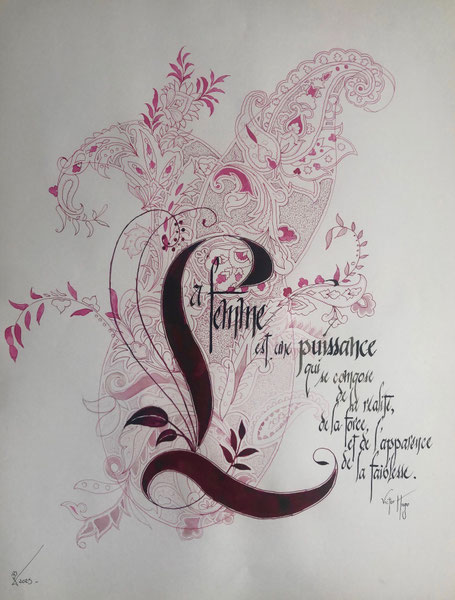 La
femme
est une puissance
qui
se compose
de la réalité,
de la force,
et de l'apparence
de la faiblesse.
Victor Hugo
2023